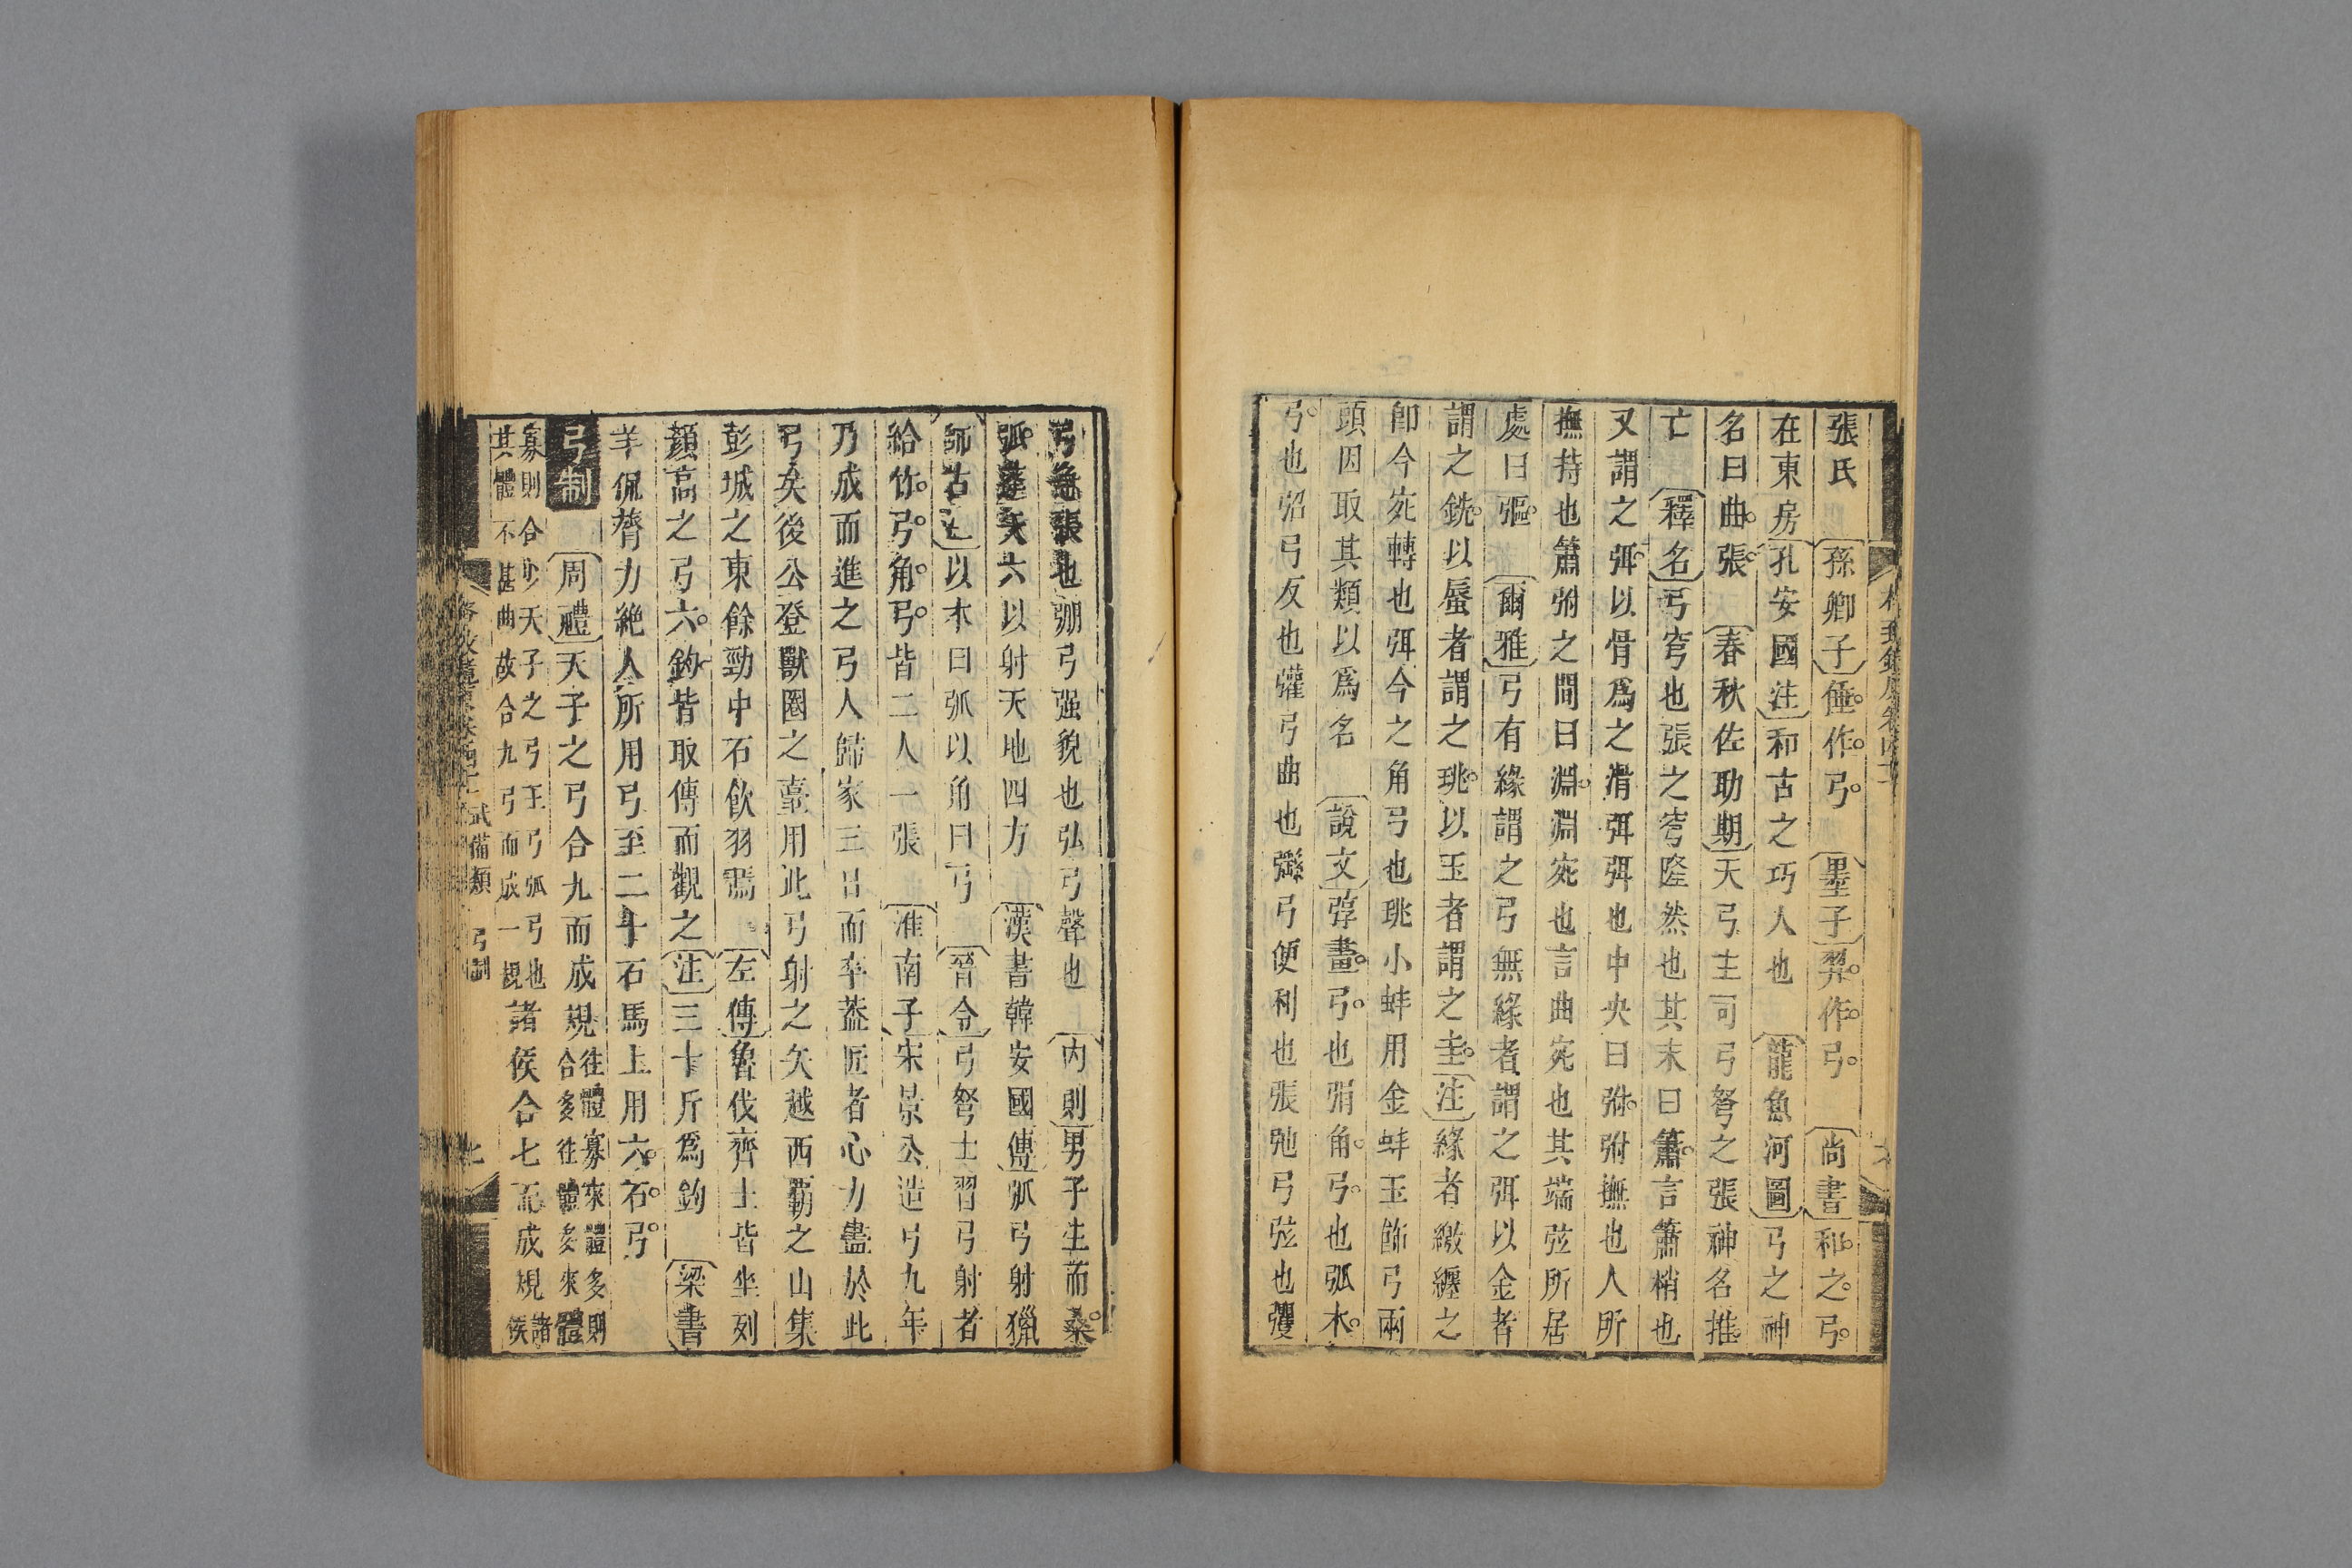 張氏 孫卿子倕作弓 墨子羿作弓 尚書和之弓
在東房孔安國注和古之巧人也 龍魚河圖弓之神
名曰曲張 春秋佐助期天弓主司弓弩之張神名推
亡 釋名弓穹也張之穹隆然也其末曰簫言簫梢也
又謂之弭以骨爲之滑弭弭也中央曰弣弣撫也人所
撫持也簫弣之間曰淵淵宛也言曲宛也其端弦所居
處曰彄 爾雅弓有緣謂之弓無緣者謂之弭以金者
謂之銑以蜃者謂之珧以玉者謂之圭注緣者繳纏之
卽今宛轉也弭今之角弓也珧小蚌用金蚌玉飾弓兩
頭因取其類以爲名 說文弴畫弓也弲角弓也弧木
弓也弨弓反也彏弓曲也弓便利也張弛弓弦也彏
弓急張也弸弓强貌也弘弓聲也 内則男子生而桑
弧蓬矢六以射天地四方 漢書韓安國傳弧弓射獵
師古注以木曰弧以角曰弓 晉令弓弩士習弓射者
給竹弓角弓皆二人一張 淮南子宋景公造弓九年
乃成而進之弓人歸家三日而卒葢匠者心力盡於此
弓矣後公登獸圈之臺用此弓射之矢越西霸之山集
彭城之東餘勁中石飮羽焉 左傳魯伐齊士皆坐列
顏高之弓六鈞皆取傳而觀之注三十斤爲鈞 梁書
羊侃膂力絶人所用弓至二十石馬上用六石弓
弓制 周禮天子之弓合九而成規往體寡來體多則合多往體多來體
寡則合少天子之弓王弓弧弓也其體不甚曲故合九弓而成一規諸侯合七而成規諸侯
格致鏡原卷四十 武備類 弓制 七